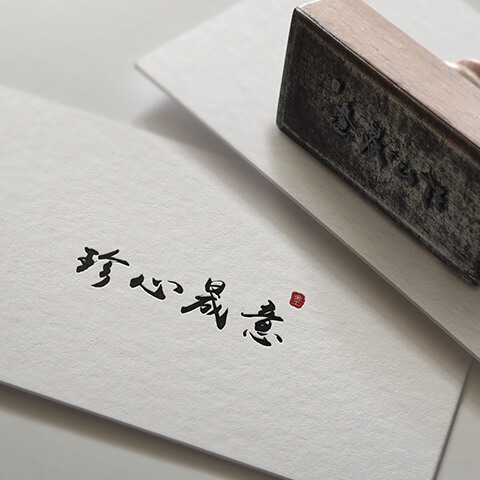 珍心晟意